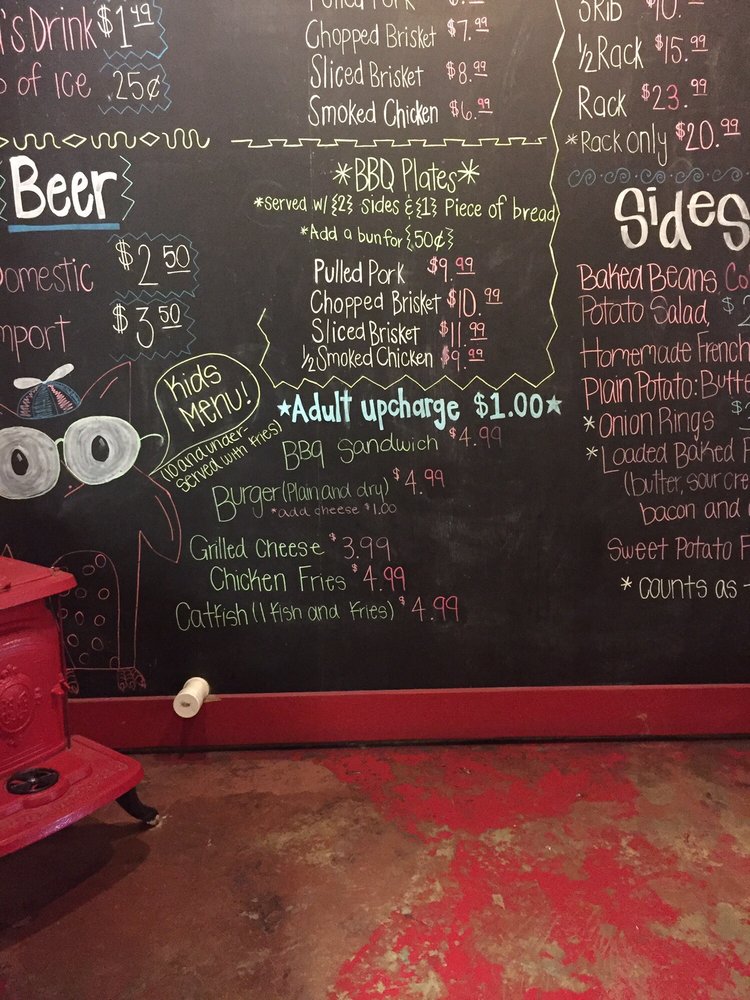 's Drink $1.49
of Ice 25¢
Beer
Domestic $2.50
Import $3.50
Pulled Pork
Chopped Brisket $7.99
Sliced Brisket $8.99
Smoked Chicken $6.99
*BBQ Plates*
*Served w/ {2} sides & {1} Piece of bread
*Add a bun for {.50¢}
Pulled Pork $9.99
Chopped Brisket $10.99
Sliced Brisket $11.99
½ Smoked Chicken $9.99
Kids Menu!
(10 and under-
served with fries)
★Adult upcharge $1.00★
BBQ Sandwich $4.99
Burger (Plain and dry) $4.99
*add cheese $1.00
Grilled Cheese $3.99
Chicken Fries $4.99
Catfish (1 fish and fries) $4.99
3Rib $10.
½ Rack $15.99
Rack $23.99
*Rack only $20.99
Sides
Baked Beans
Potato Salad
Homemade French
Plain Potato: Butte
*Onion Rings
*Loaded Baked
(butter, sour cre
bacon and
Sweet Potato F
*counts as